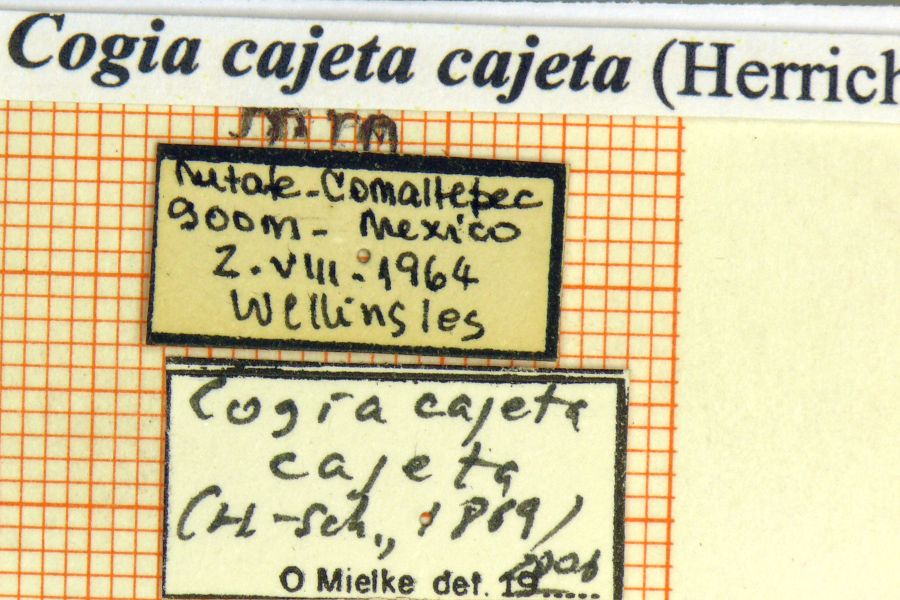 Cogia cajeta cajeta (Herrich
Comaltepec
900m - Mexico
2.VIII-1964
Cogia cajeta
cajeta
(H-Sch., 1869)
O Mielke det. 19